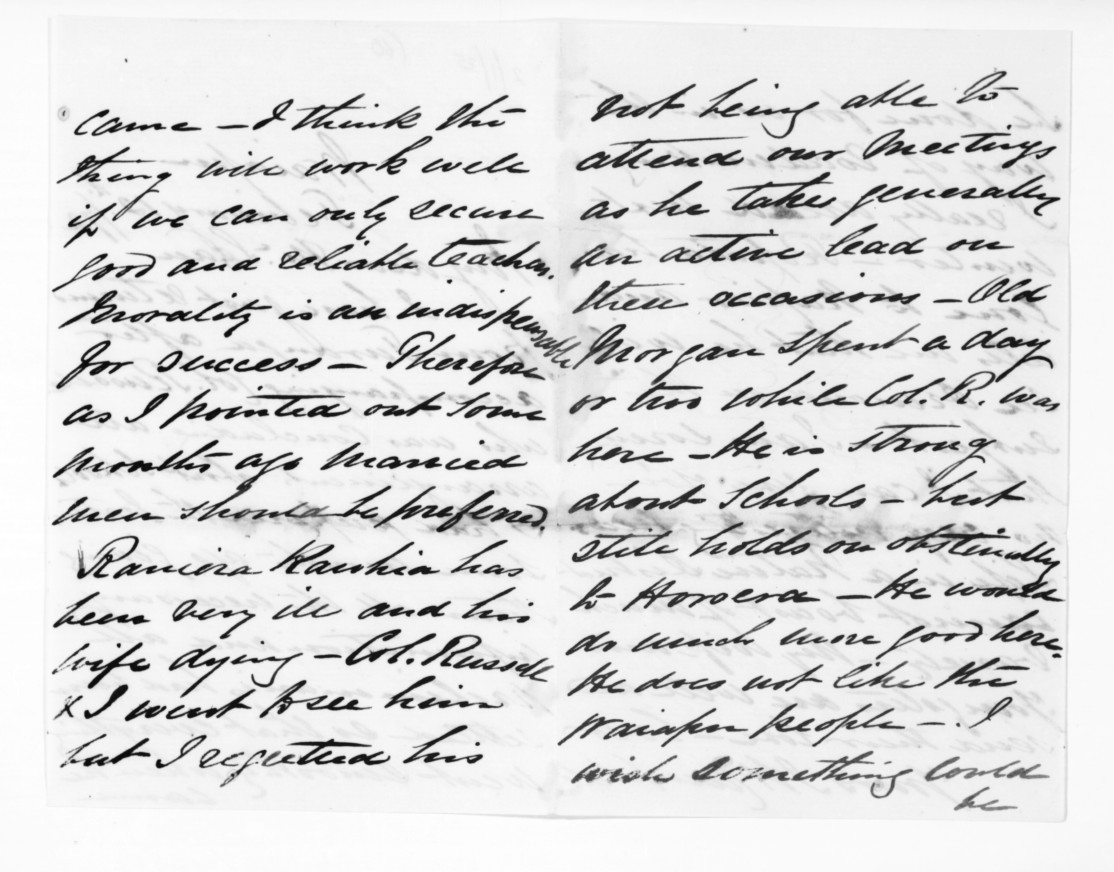 came - I think the
thing will work well
if we can only secure
good and reliable teachers.
Morality is an indispensable
for success - Therefore
as I pointed out some
months ago married
men should be preferred.
Raniera Kawhia has
been very ill and his
wife dying - Col. Russell
& I went to see him
but I regretted his
not being able to
attend our Meetings
as he takes generally
an active lead on
these occasions - Old
Morgan spent a day
or two while Col. R. was
here - He is strong
about Schools - but
still holds on obstinately
to Horoera - He would
do much more good here.
He does not like the
Waiapu people - I
wish something could
be